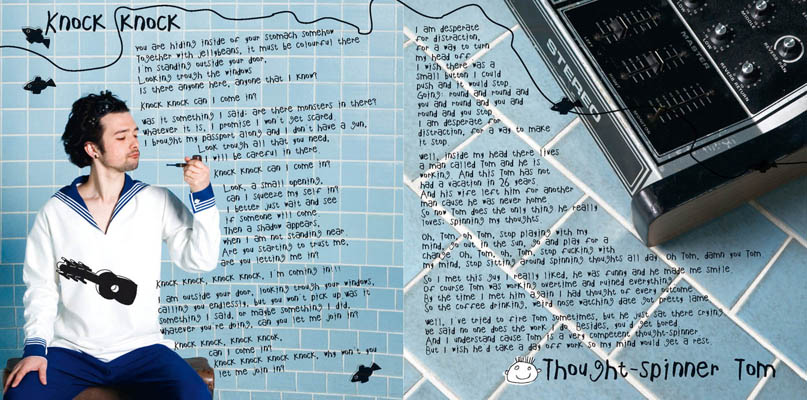 Knock Knock
you are hiding inside of your stomach somehow
Together with jellybeans, it must be colourful there
I'm standing outside your door,
Looking trough the windows
is there anyone here, anyone that I know?
Knock Knock can I come in?
was it something I said? are there monsters in there?
whatever it is, I promise I won't get scared
I brought my passport along and I don't have a gun,
Look trough all that you need,
I will be careful in there.
Knock Knock can I come in?
Look, a small opening,
can I squeeze my self in?
I better just wait and see
if someone will come.
Then a shadow appears,
when I am not standing near.
Are you starting to trust me,
are you letting me in?
Knock Knock, Knock Knock, I'm coming in!!!
I am outside your door, looking trough your windows,
calling you endlessly, but you won't pick up was it
something I said, or maybe something I did,
whatever you're doing, can you let me join in?
Knock, Knock, Knock Knock,
can I come in?
Knock Knock Knock Knock, why won't you
let me join in?
I am desperate
for distraction,
for a way to turn
my head off
I wish there was a
small button I could
push and it would stop
Going: round and round and
you and round and you and
round and you Stop
I am desperate for
distraction, for a way to make
it stop
well, inside my head there lives
a man called Tom and he is
working. And this Tom has not
had a vacation in 26 years
And his wife left him for another
man cause he was never home
So now Tom does the only thing he really
loves: spinning my thoughts.
Oh, Tom, oh Tom, stop playing with my
mind, go out in the sun, and play for a
change Oh, Tom, oh, Tom stop fucking with
my mind, stop sitting around spinning thoughts all day Oh Tom, damn you Tom
So I met this guy I really liked, he was funny and he made me smile
Of course Tom was working overtime and ruined everything
By the time I met him again I had thought of every outcome
So the coffee drinking, weird nose watching date got pretty lame
Well, I've tried to fire Tom sometimes, but he just sat there crying
he said no one does the work I do Besides, you'd get bored
And I understand cause Tom is a very competent thought-spinner
But I wish he'd take a day off work so my mind would get a rest
Thought-spinner Tom
STEREO
MASTER